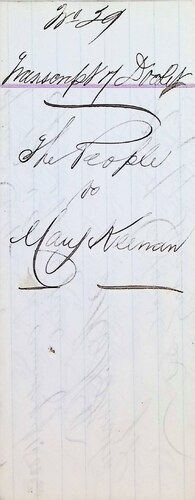 No 39
Transcript of Docket
The People
vs
Mary Keenan